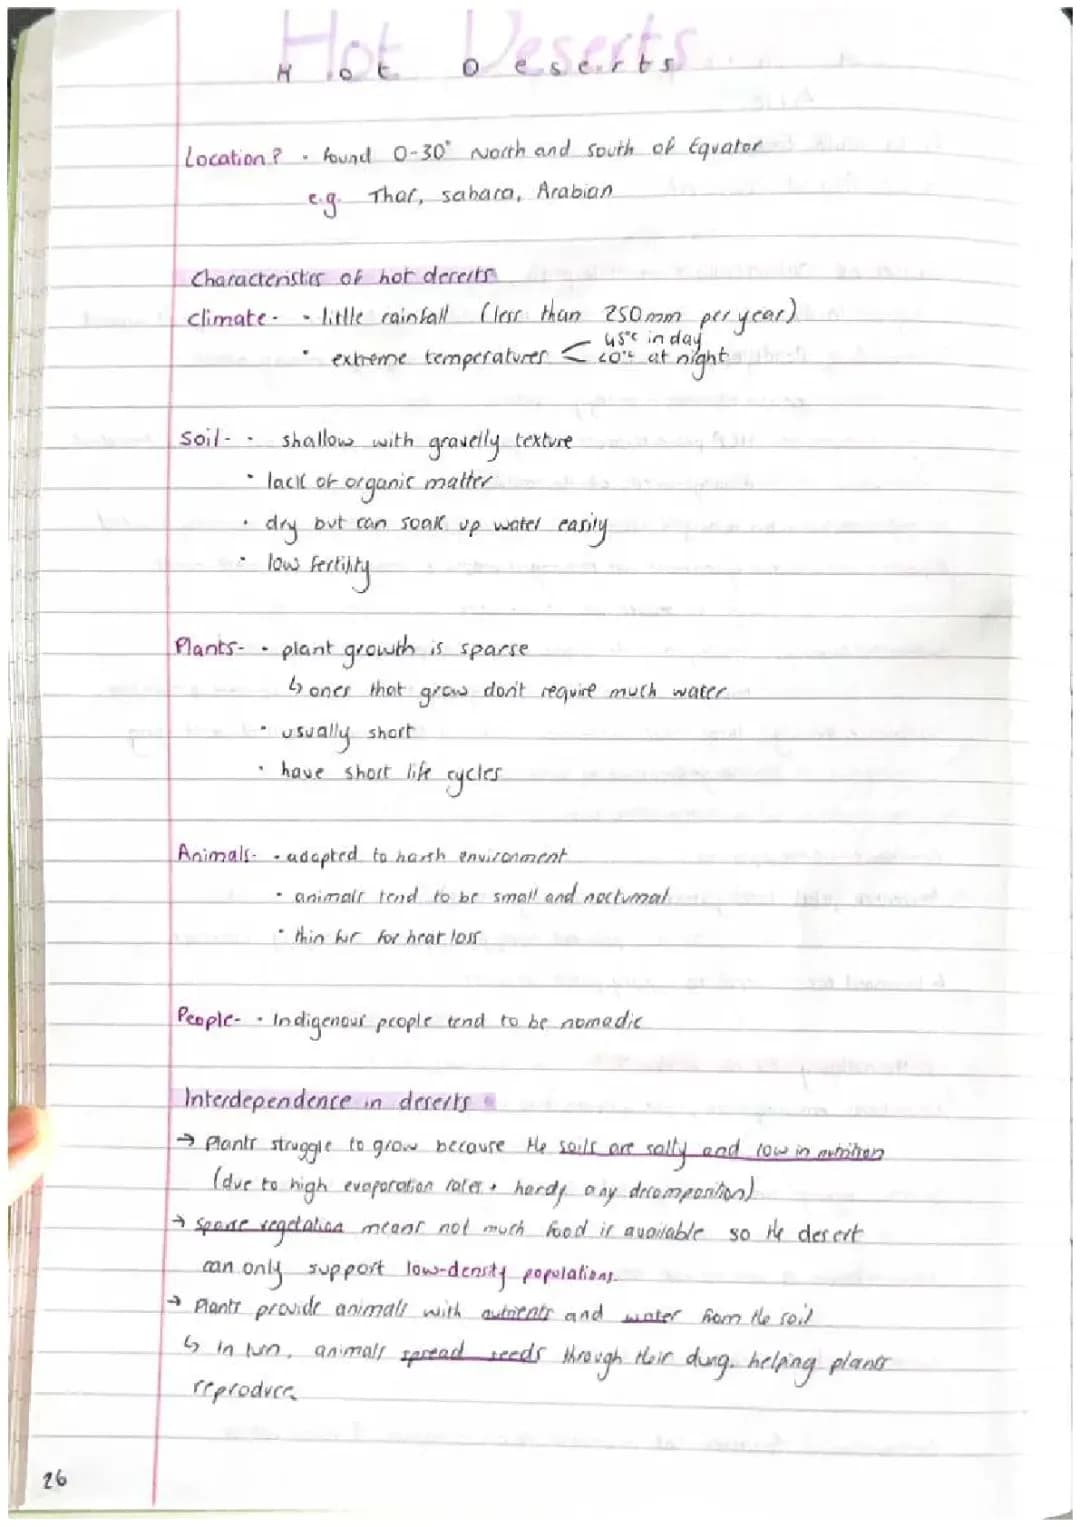 Hot Deserts
Hot Deserts
Location? · found 0-30° North and South of Equator
e.g. Thar, sahara, Arabian
Characteristics of hot deserts
Climate- · little rainfall (less than 250mm per year)
45°c in day
· extreme temperatures < <0°c at night
Soil- · shallow with gravelly texture
· lack of organic matter
· dry but can soak up water easily
· low fertility
Plants- · plant growth is sparse
↳ ones that grow don't require much water
· usually short
· have short life cycles
Animals- · adapted to harsh environment
· animals tend to be small and nocturnal
· thin fur for heat loss
People- · Indigenous people tend to be nomadic
Interdependence in deserts
→ Plants struggle to grow because the soils are salty and low in nutrition
(due to high evaporation rates + hardly any decomposition)
→ Sparse vegetation means not much food is available so the desert
can only support low-density populations
→ Plants provide animals with nutrients and water from the soil
↳ in turn, animals spread seeds through their dung, helping plants
reproduce
26